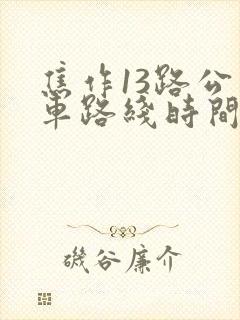 焦作13路公
車路綫時間
磯谷廉介